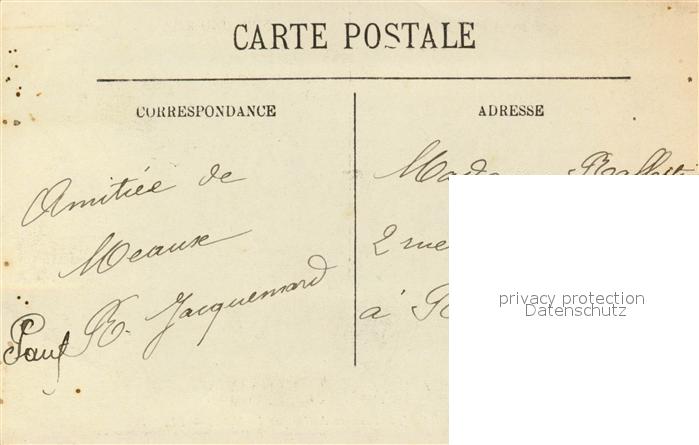 CARTE POSTALE
CORRESPONDANCE
Amitiée de
Meaux
Paul E. Jacquemard
ADRESSE
2 rue
à
privacy protection
Datenschutz